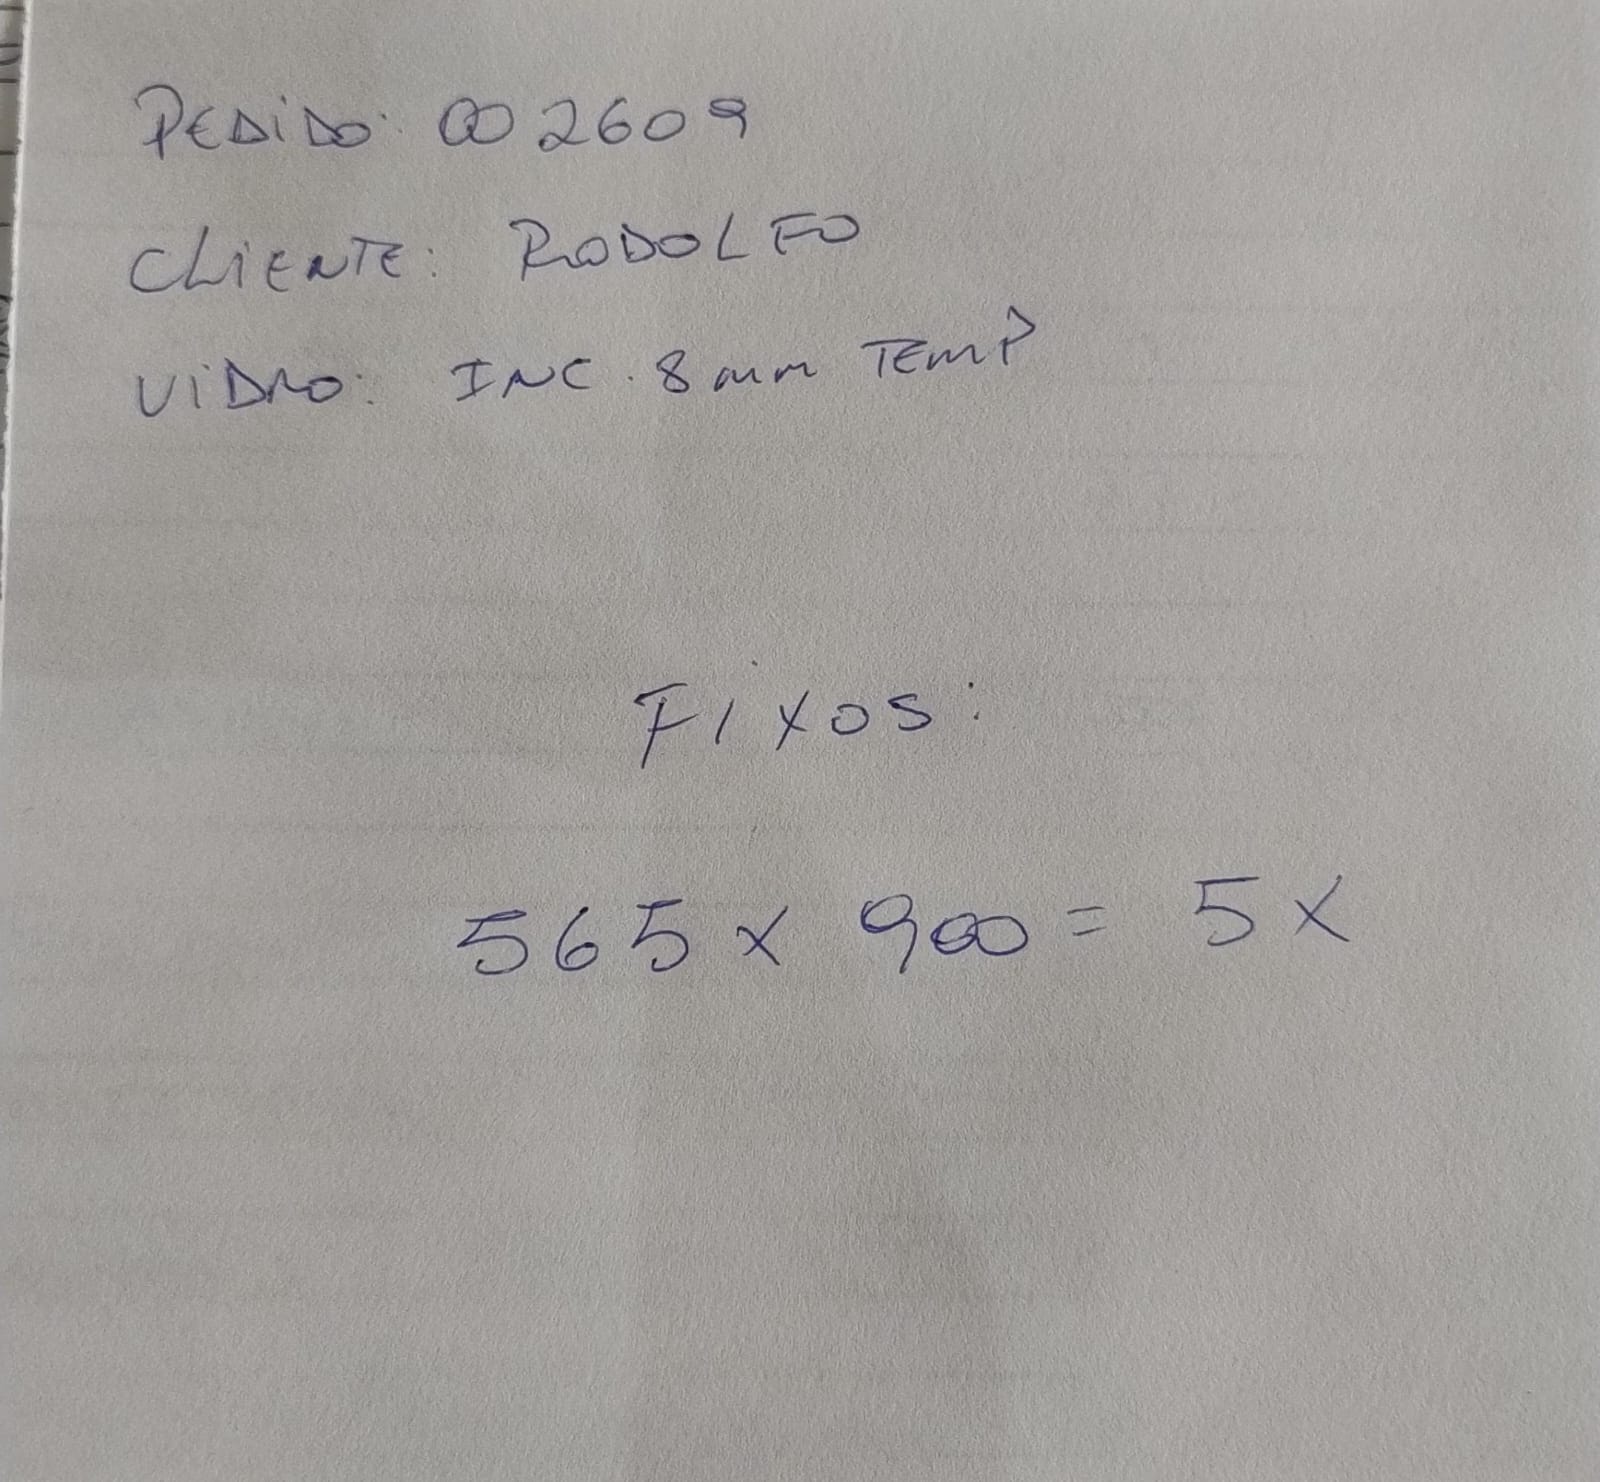 PEDIDO: 002609
CLIENTE: RODOLFO
VIDRO: INC. 8mm TEMP
FIXOS:
565 x 900 = 5x